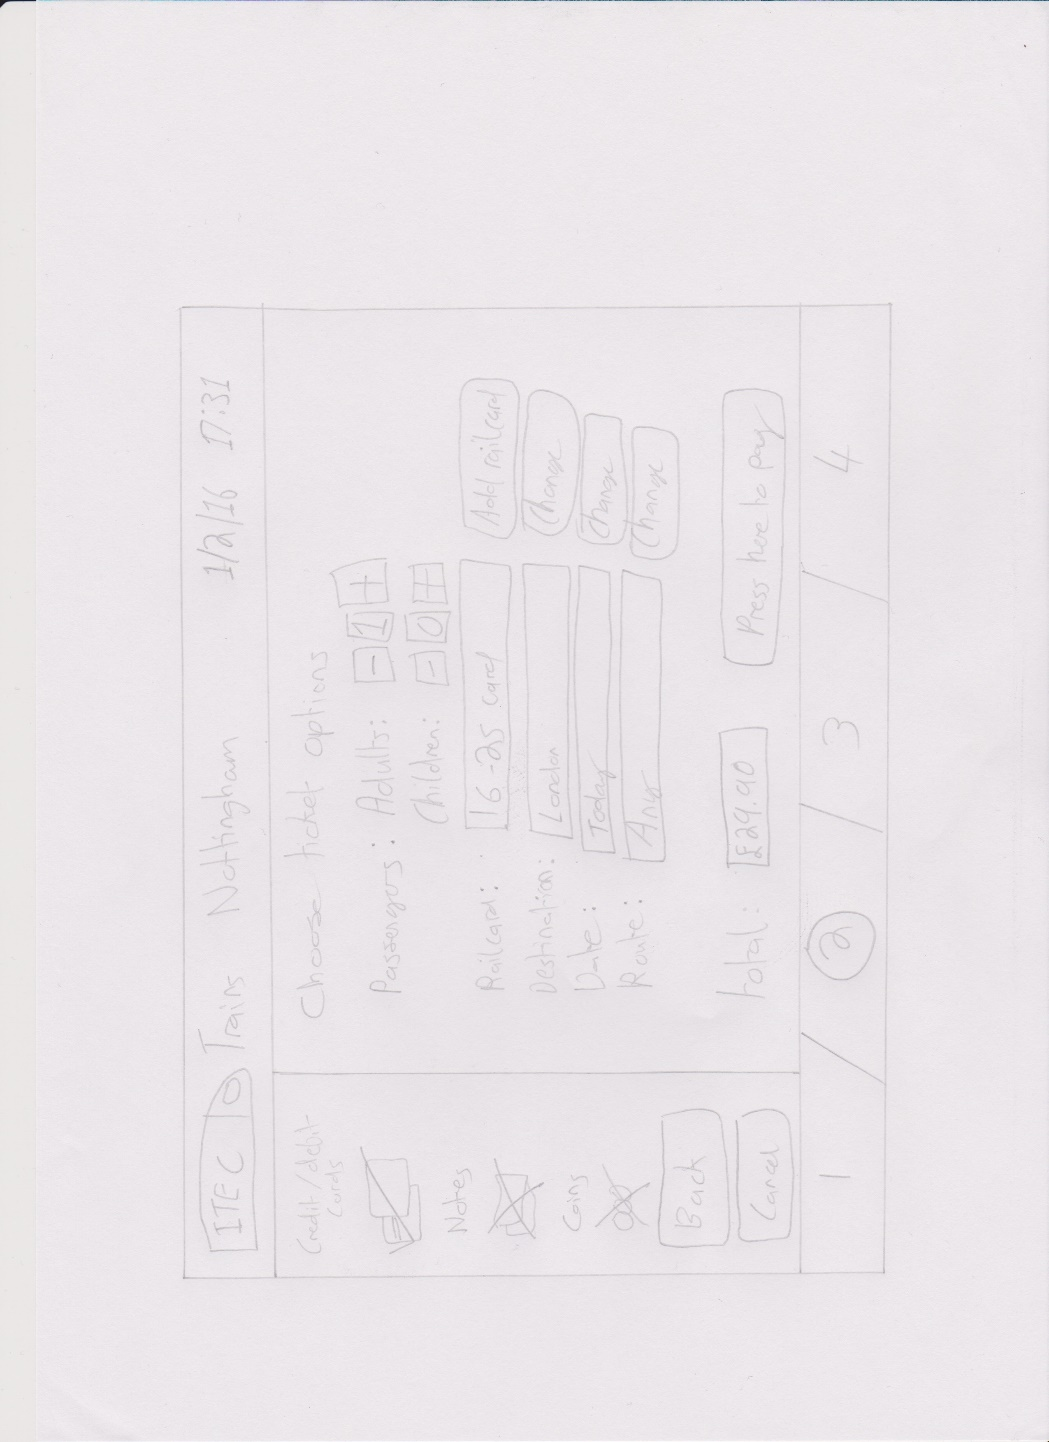 ITEC Trains Nottingham 1/2/16 17:31
Credit/debit
cards
Notes
Coins
Back
Cancel
Choose ticket options
Passengers: Adults: - 1 +
Children: - 0 +
Railcard: 16-25 card Add railcard
Destination: London Change
Date: Today Change
Route: Any Change
total: £29.90 Press here to pay
1 / 2 / 3 / 4